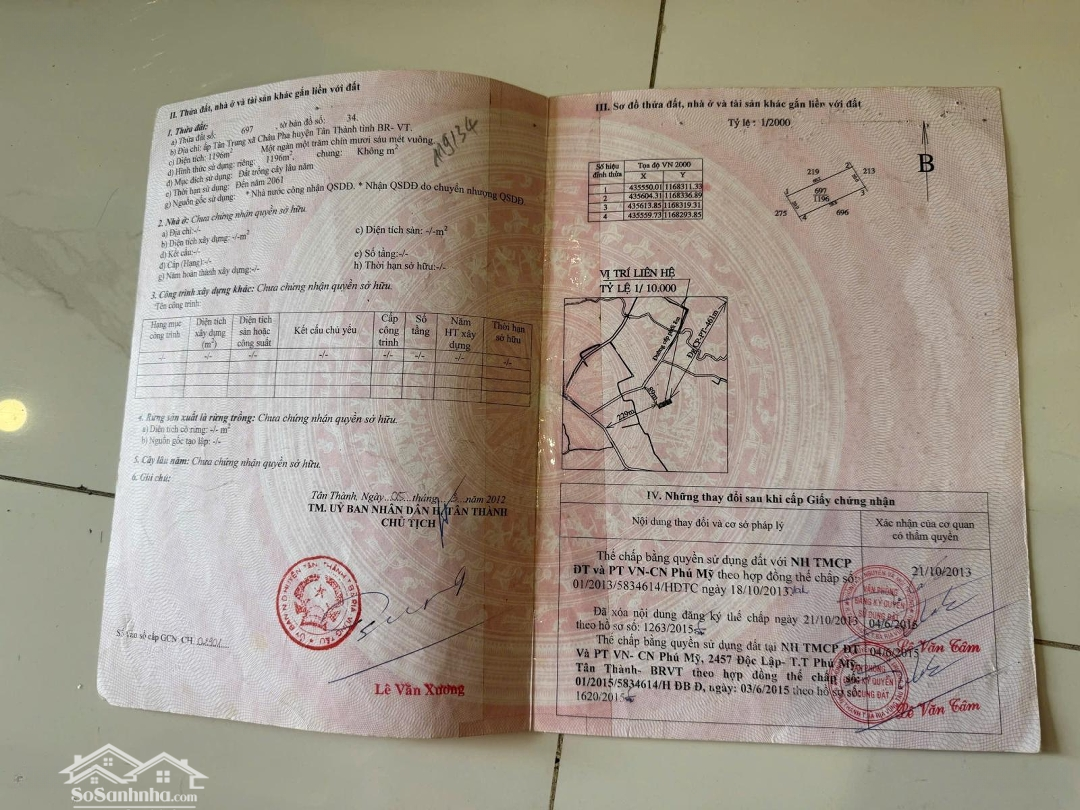 II. Thửa đất, nhà ở và tài sản khác gắn liền với đất
1. Thửa đất:
a) Thửa đất số: 697 tờ bản đồ số: 34.
b) Địa chỉ: ấp Tân Trung xã Châu Pha huyện Tân Thành tỉnh BR- VT.
c) Diện tích: 1196m² Một ngàn một trăm chín mươi sáu mét vuông
d) Hình thức sử dụng: riêng: 1196m², chung: Không m²
đ) Mục đích sử dụng: Đất trồng cây lâu năm
e) Thời hạn sử dụng: Đến năm 2061
g) Nguồn gốc sử dụng: * Nhà nước công nhận QSDĐ. * Nhận QSDĐ do chuyển nhượng QSDĐ
A19134
2. Nhà ở: Chưa chứng nhận quyền sở hữu.
a) Địa chỉ:-/-
b) Diện tích xây dựng: -/-m²
c) Diện tích sàn: -/-m²
d) Kết cấu:-/-
đ) Cấp (Hạng):-/-
e) Số tầng:-/-
g) Năm hoàn thành xây dựng:-/-
h) Thời hạn sở hữu:-/-
3. Công trình xây dựng khác: Chưa chứng nhận quyền sở hữu.
Tên công trình:
Hạng mục công trình
Diện tích xây dựng (m²)
Diện tích sàn hoặc công suất
Kết cấu chủ yếu
Cấp công trình
Số tầng
Năm HT xây dựng
Thời hạn sở hữu
-/- -/- -/- -/- -/- -/- -/- -/-
4. Rừng sản xuất là rừng trồng: Chưa chứng nhận quyền sở hữu.
a) Diện tích có rừng: -/- m²
b) Nguồn gốc tạo lập: -/-
5. Cây lâu năm: Chưa chứng nhận quyền sở hữu.
6. Ghi chú:
Tân Thành, Ngày 05 tháng năm 2012
TM. UỶ BAN NHÂN DÂN H. TÂN THÀNH
CHỦ TỊCH
Số vào sổ cấp GCN CH
Lê Văn Xương
III. Sơ đồ thửa đất, nhà ở và tài sản khác gắn liền với đất
Tỷ lệ : 1/2000
Số hiệu đỉnh thửa
Tọa độ VN 2000
X Y
1 435550.01 1168311.33
2 435604.31 1168336.89
3 435613.85 1168319.31
4 435559.73 1168293.85
219 213
697
1196
275 696
B
VỊ TRÍ LIÊN HỆ
TỶ LỆ 1/ 10.000
229m
IV. Những thay đổi sau khi cấp Giấy chứng nhận
Nội dung thay đổi và cơ sở pháp lý
Xác nhận của cơ quan có thẩm quyền
Thế chấp bằng quyền sử dụng đất với NH TMCP
ĐT và PT VN-CN Phú Mỹ theo hợp đồng thế chấp số:
01/2013/5834614/HĐTC ngày 18/10/2013
21/10/2013
Đã xóa nội dung đăng ký thế chấp ngày 21/10/2013
theo hồ sơ số: 1263/2015
04/6/2015
Lê Văn Tám
Thế chấp bằng quyền sử dụng đất tại NH TMCP ĐT
Và PT VN- CN Phú Mỹ, 2457 Độc Lập- T.T Phú Mỹ
Tân Thành- BRVT theo hợp đồng thế chấp số:
01/2015/5834614/H ĐB Đ, ngày: 03/6/2015 theo hồ sơ số:
1620/2015
04/6/2015
Lê Văn Tám
VĂN PHÒNG
ĐĂNG KÝ QUYỀN
SỬ DỤNG ĐẤT
SoSanhnha.com